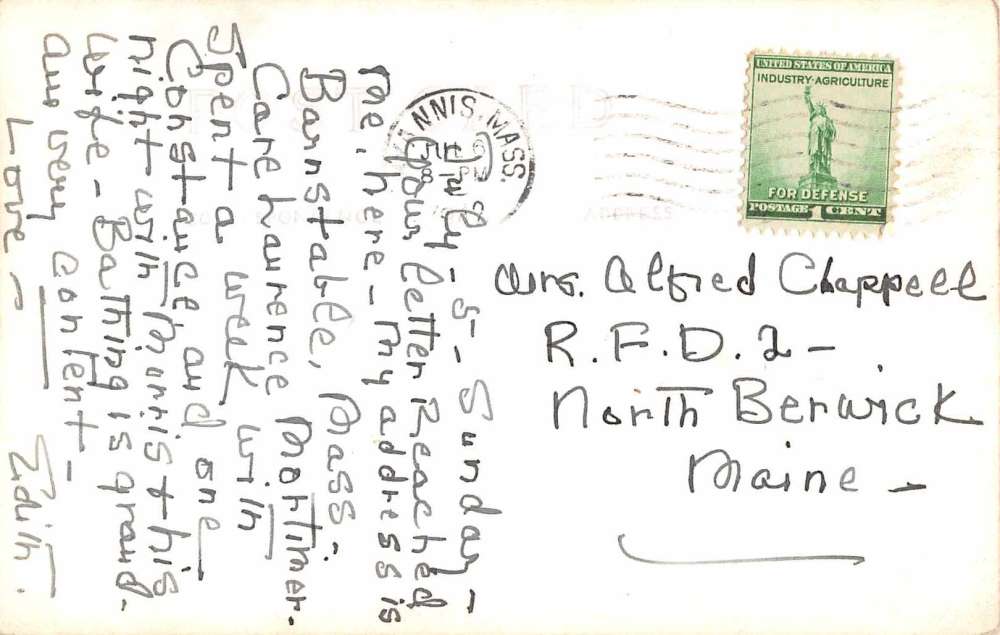 July - 5 - Sunday -
your letter Reached
me. here - my address is
Barnstable, Mass -
Care Laurence Mortimer.
Spent a week with
Constance, and one
night with Morris & his
wife - Bathing is grand.
am very content -
Love -
Edith.
NNIS. MASS.
PM
UNITED STATES OF AMERICA
INDUSTRY·AGRICULTURE
FOR DEFENSE
POSTAGE 1 CENT
Mrs. Alfred Chappell
R.F.D. 2 -
North Berwick
Maine -